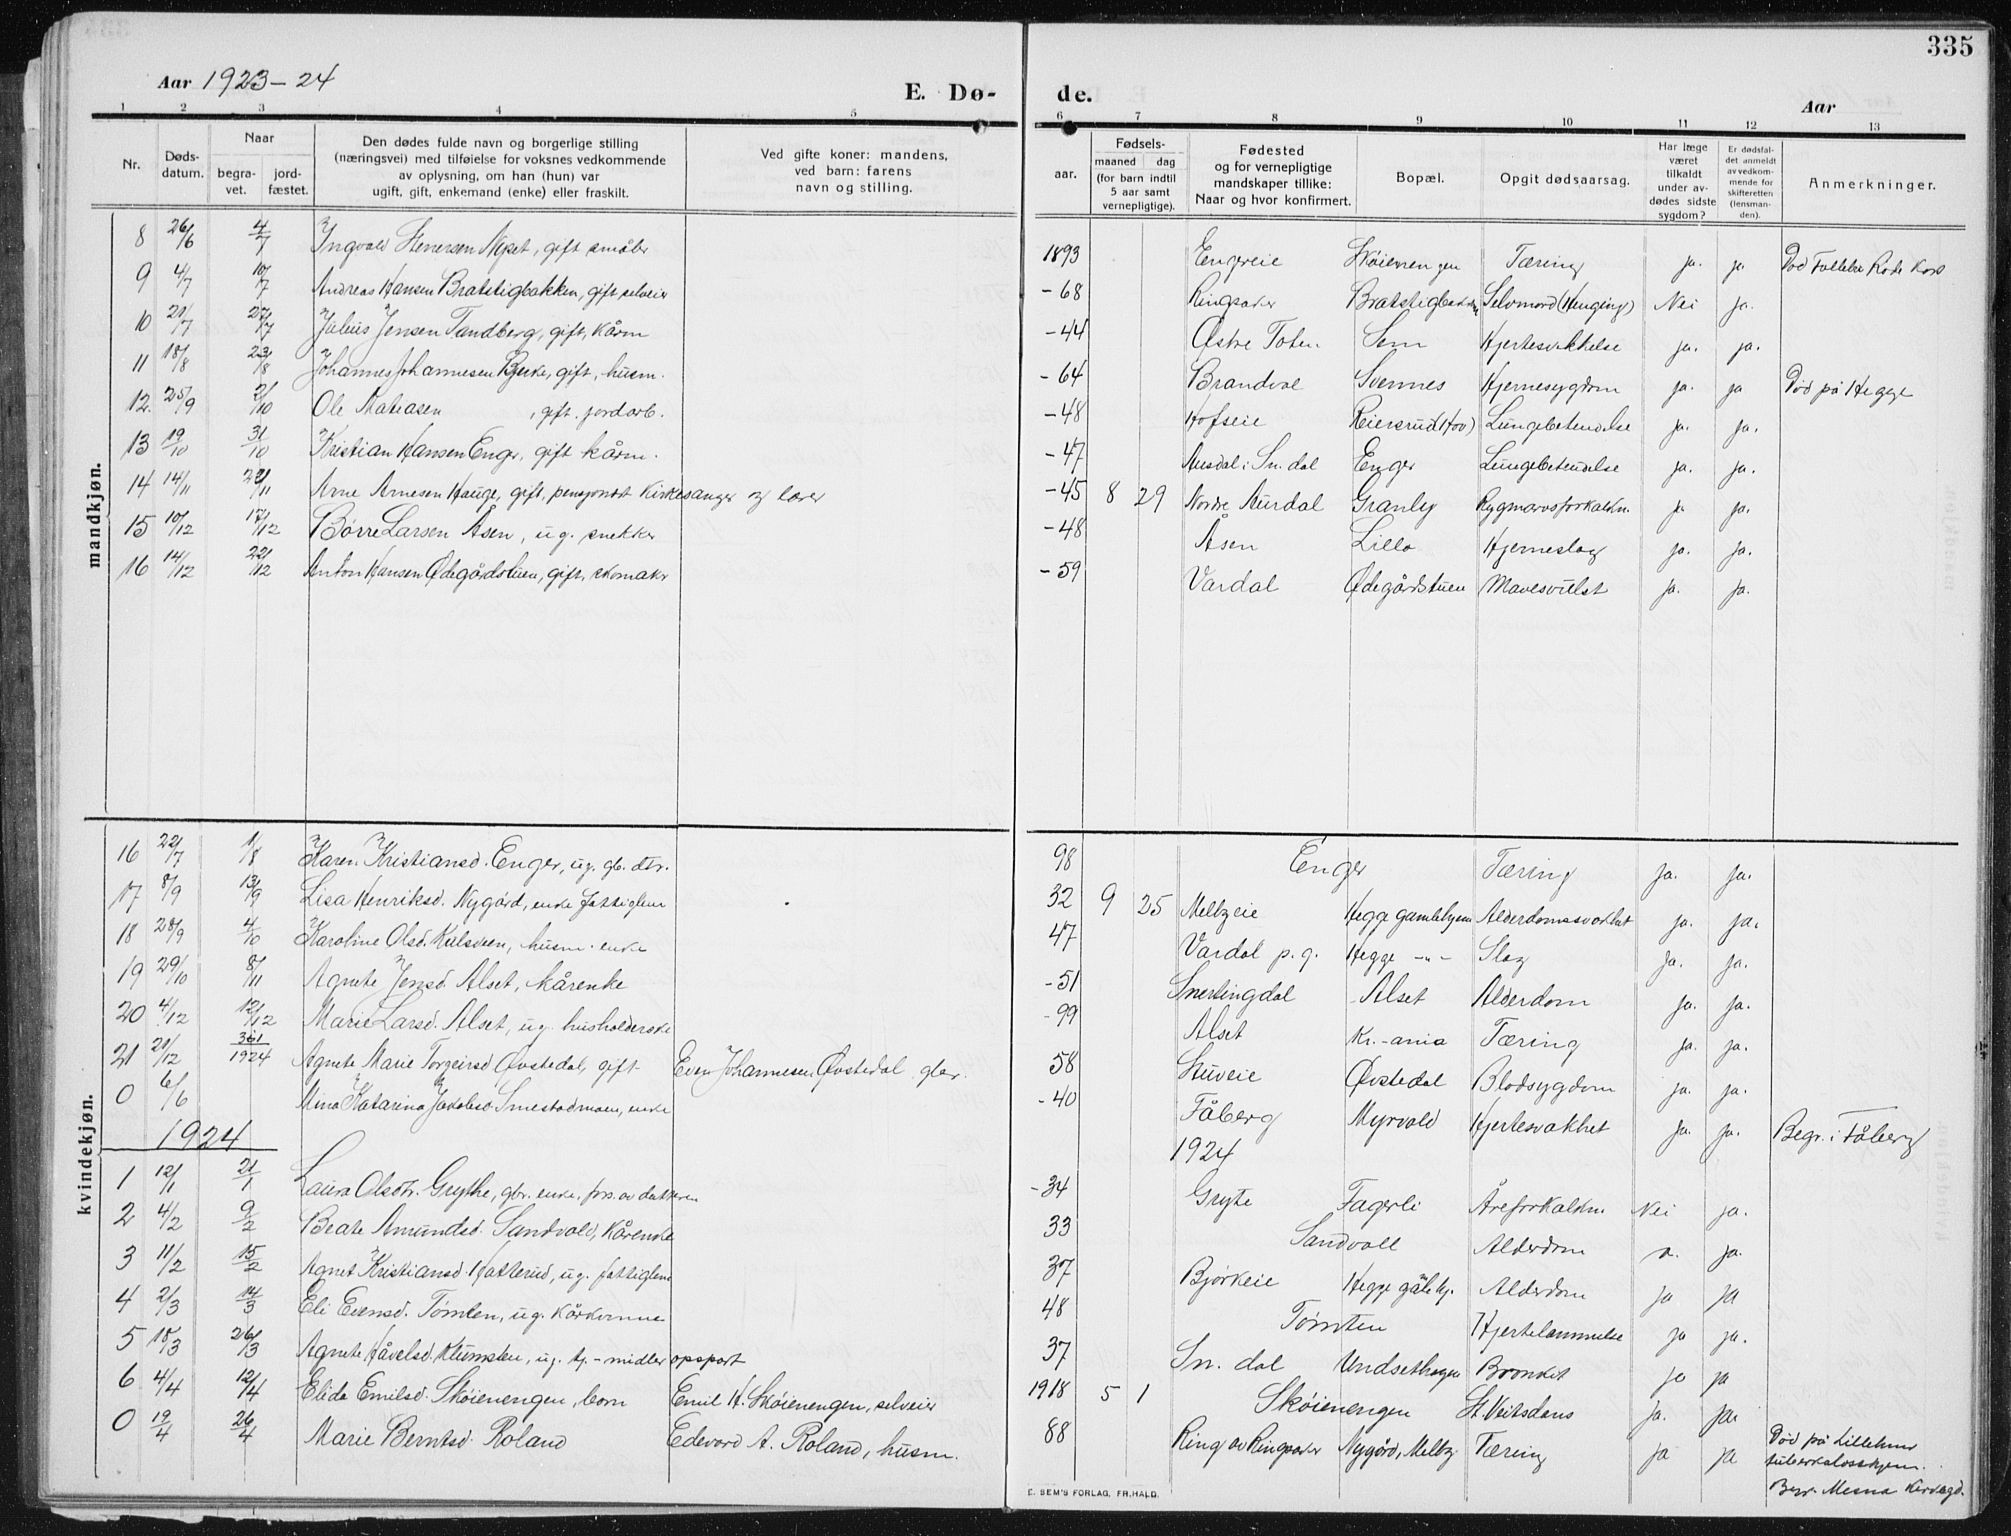 335
Aar 1923-24
E. Dø-
de.
Aar
1 2 3 4 5
6 7 8 9 10 11 12 13
Nr.
Døds-
datum.
Naar
begra-
vet.
jord-
fæstet.
Den dødes fulde navn og borgerlige stilling
(næringsvei) med tilføielse for voksnes vedkommende
av oplysning, om han (hun) var
ugift, gift, enkemand (enke) eller fraskilt.
Ved gifte koner: mandens,
ved barn: farens
navn og stilling.
aar.
Fødsels-
maaned dag
(for barn indtil
5 aar samt
vernepligtige).
Fødested
og for vernepligtige
mandskaper tillike:
Naar og hvor konfirmert.
Bopæl.
Opgit dødsaarsag.
Har læge
været
tilkaldt
under av-
dødes sidste
sygdom?
Er dødsfal-
det anmeldt
av vedkom-
mende for
skifteretten
(lensman-
den).
Anmerkninger.
mandkjøn.
8 26/6 4/7 Ingvald, gift småbr 1893 Engereie Skøienengen Tæring ja. ja Død Follebu Røde Kors
9 4/7 10/7 Andreas Hansen Bratstigbakken, gift selveier -68 Ringsaker Bratstigbakken Selvmord (Henging) Nei ja.
10 21/7 27/7 Julius Jensen Tandberg, gift, kårm -44 Østre Toten Sem Hjertesvækkelse ja. ja.
11 18/8 23/8 Johannes Johannesen Bjerke, gift, husm. -64 Brandvol Svennes Hjernesygdom ja. ja Død på Hegge
12. 25/9 2/10 Ole Matiasen, gift. jordarb. -48 Hofseie Reiersrud (Hov) Lungebetendelse ja. ja.
13 19/10 31/10 Kristian Hansen Enger, gift kårm. -47 Ausdal i Sn. dal Enger Lungebetendelse ja. ja.
14 14/11 22/11 Arne Arnesen Hauge, gift, pensjonert kirkesanger og lærer -45 8 29 Nordre Aurdal Granly Rygmarvsforkalkn. ja ja.
15 10/12 17/12 Børre Larsen Åsen, ug. snekker -48 Åsen Lillo Hjerneslag ja. ja.
16 14/12 22/12 Anton Hansen Ødegårdstuen, gift, skomaker -59 Vardal Ødegårdstuen Mavesvulst ja. ja.
kvindekjøn.
16 22/7 1/8 Karen Kristiansd. Enger, ug. gb. dtr. 98 Enger Tæring ja. ja.
17 8/9 13/9 Lisa Henriksd. Nygård, enke fattiglem 32 9 25 Melbyeie Hegge gamlehjem Alderdomssvakhet ja. ja.
18 28/9 4/10 Karoline Olsd. Kulsveen, husm. enke 47 Vardal p.g. Hegge -"- Slag ja. ja.
19 29/10 8/11 Agnete Jensd. Alset, kårenke -51 Snertingdal Alset Alderdom ja. ja.
20 4/12 12/12 Marie Larsd. Alset, ug. husholderske -99 Alset Kr.-ania Tæring ja. ja.
21 21/12 1924 Agnete Marie Torgeirsd Øvstedal, gift Even Johannesen Øvstedal gbr. 58 Stuveie Øvstedal Blodsygdom ja. ja.
0 6/6 Mina Katarina Jakobsd. Smestadmoen, enke -40 Fåberg Myrvold Hjertesvakhet ja. ja. Begr. i Fåberg
1924 1924
1 12/1 21/1 Laura Olsdtr. Grythe, gbr. enke, fors. av datteren -34 Gryte Fagerli Åreforkalkn Nei ja.
2 4/2 9/2 Beate Amundsd. Sandvold, kårenke 33 Sandvoll Alderdom ja
3 11/2 15/2 Agnet Kristiansd. Hatterud, ug. fattiglem 37 Bjørkeie Hegge Alderdom ja ja
4 2/3 14/3 Eli Evensd. Tømten, ug. kårkvinne 48 Tømten Hjertelammelse ja ja.
5 18/3 26/3 Agnete Håvelsd. Klumsten, ug. 37 Sn. dal Undsethagen Bronkit ja ja
6 4/4 12/4 Elida Emilsd. Skøienengen, barn Emil H. Skøienengen, selveier 1918 5 1 Skøienengen St. Veitsdans ja. ja.
0 19/4 26/4 Marie Berntsd. Roland Edevard A. Roland, husm. 88 Ring av Ringsaker Nygård, Melby Tæring ja ja Død på Lillehmr
tuberkuloschjem.
Begr. Mesna Kirkegd.
E. SEM'S FORLAG, FR.HALD.